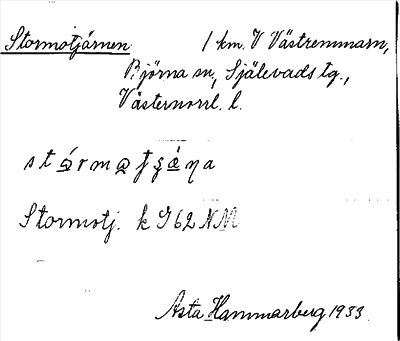 Stormotjärnen 1 km. V Västremmarn,
Björna sn, Själevads tg.,
Västernorrl. l.
Stormotj. k J62 NM
Asta Hammarberg 1933